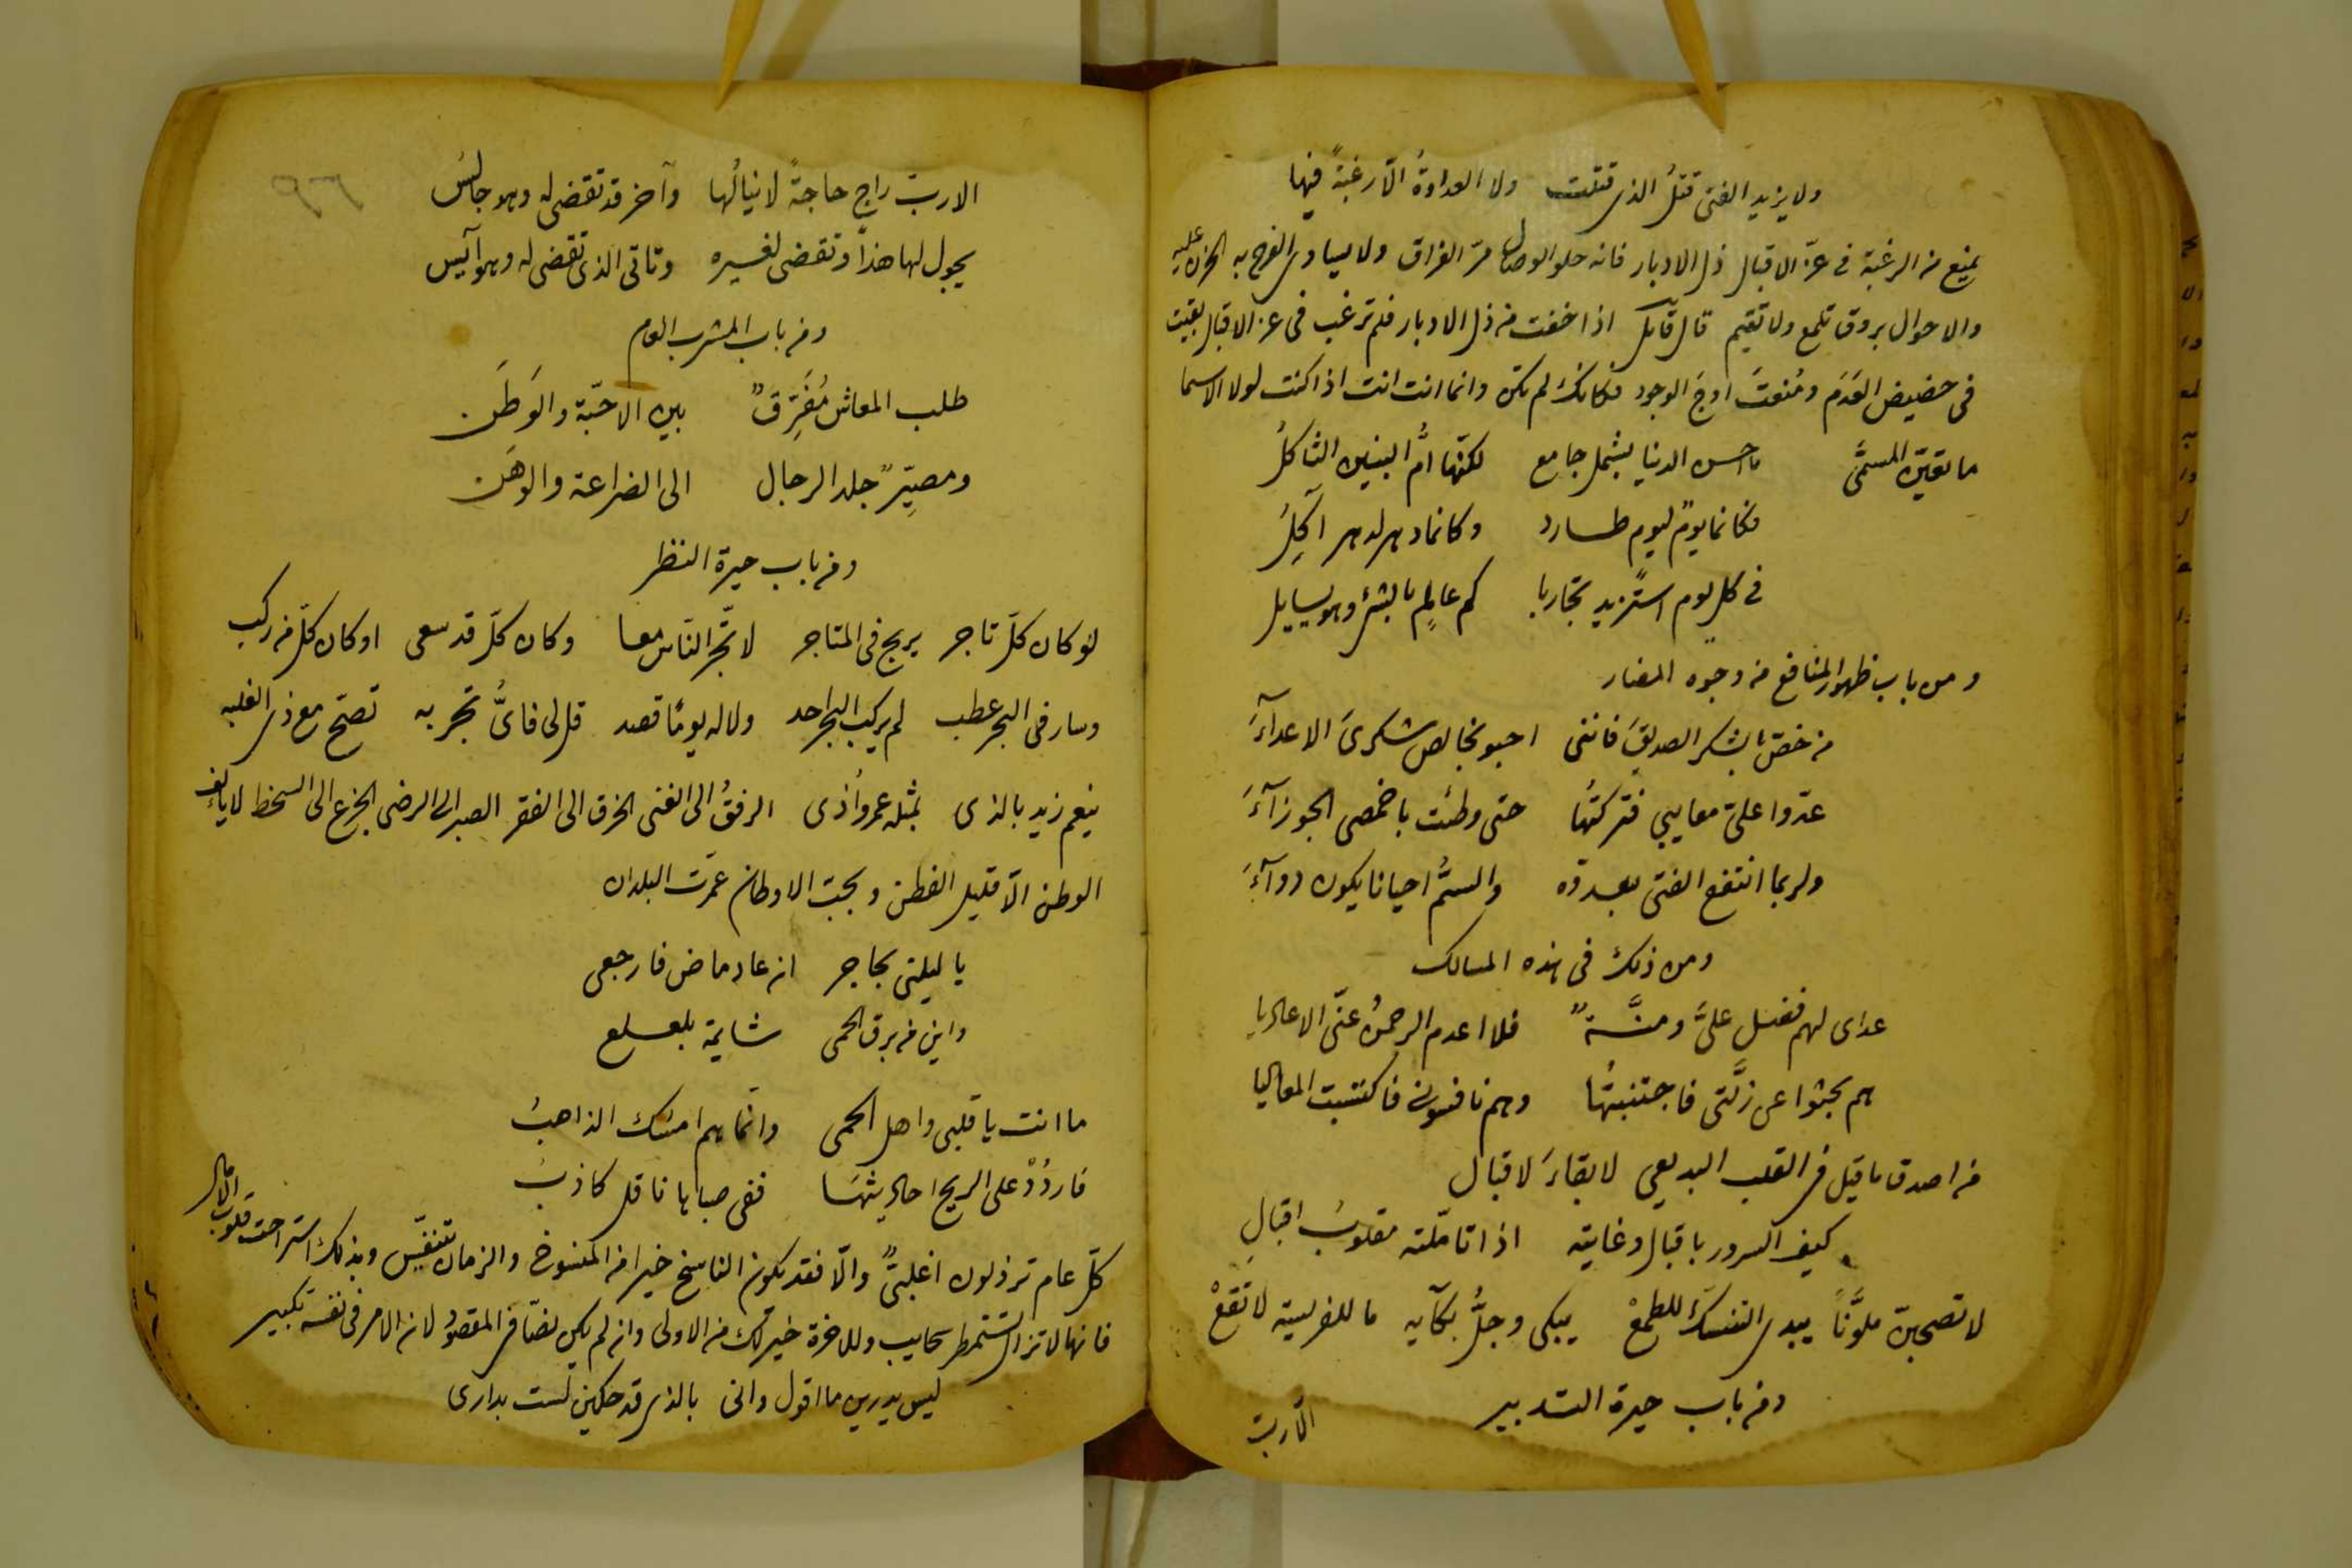 ولا يزيد الفتى قتلُ الذى قتلت ولا العداوةُ الّا رغبةً فيها
يمنع من الرغبة فى عزّ الاقبال ذل الادبار فانه حلو الوصال مرّ الفراق ولا يساوى الفرح به الحزن عليه
والاحوال بروق تلمع ولا تقيم قال قآئل اذا خفت من ذل الادبار فلم ترغب فى عز الاقبال بقيت
فى حضيض العَدَم ومُنعتَ اوجَ الوجود فكانك لم تكن وانما انت انت اذا كنت لولا الاسما
ما تعيّن المسمّى ما احسن الدنيا بشمل جامع لكنّها اُمُّ البنين الثاكلُ
فكانما يومٌ ليوم طارد وكانما دهر لدهر آكِلُ
فى كل يوم استزيد تجاربا كم عالِمٍ بالشئ وهو يسايل
ومن باب ظهور المنافع من وجوه المضار
من خصّ بالشكر الصديقَ فاننى احبو بخالص شكرىَ الاعدآءَ
عدّوا علىّ معايبي فتركتُها حتى وطئت باخمصى الجوزآءَ
ولربما انتفع الفتى بعدوّه والسمُّ احيانا يكون دوآءَ
ومن ذلك فى هذه المسالك
عداى لهم فضل علىَّ ومنَّةٌ فلا اعدم الرحمنُ عنّى الاعاديا
هم بحثوا عن زلَّتى فاجتنبتُها وهم نافسونى فاكتسبت المعاليا
من اصدق ما قيل فى القلب البديعى لا بقاءَ لاقبال
كيف السرور باقبال وغايته اذا تاملّته مقلوبُ اقبالِ
لا تصحبنّ ملوَّنًا يبدى التنسكَ للطمعْ يبكى وجلُّ بكآيه ما للفريسة لا تقعْ
ومن باب حيرة التدبير
الّا ربّ
الا ربّ راجٍ حاجةً لا ينالُها وآخر قد تقضى له وهو جالسُ
يجول لها هذا وتقضى لغيره وتاتى الذى تقضى له وهو آيس
ومن باب المشرب العام
طلب المعاش مُفَرِّقٌ بين الاحّبة والوَطَن
ومصيِّرٌ جلد الرجال الى الضراعة والوهَن
ومن باب حيرة النظر
لو كان كلّ تاجر يربح فى المتاجر لاتّجر النّاس معا وكان كلّ قد سعى او كان كلّ من ركب
وسار فى البحر عطب لم يركب البحر احد ولا له يومًا قصد قل لى فاىُّ تجربه تصحّ مع ذى الغلبه
ينعم زيد بالذى بمثله عمرو اُذى الرفقُ الى الغنى الخرق الى الفقر الصبر الى الرضى الجزع الى السخط لا يالف
الوطن الّا قليل الفطن وبحب الاوطان عمّرت البلدان
يا ليلتى بحاجر ان عاد ماض فارجعى
واين من برق الحمى شايمة بلعلع
ما انت يا قلبى واهل الحمى وانّما هم امسُك الذاهبُ
فاردُدْ على الريح احاديثهَا ففى صباها ناقل كاذبُ
كلّ عام ترذلون اغلبىٌّ والّا فقد يكون الناسخ خيرا من المنسوخ والزمان يتنفّس وبذلك استراحت قلوب الآمال
فانها لا تزال تستمطر سحايب وللاخرة خير لك من الاولى وان لم يكن نصّا فى المقصود لان الامر فى نفسه كبير
ليس يدرين ما اقول وانى بالذى قد حكين لست بدارى